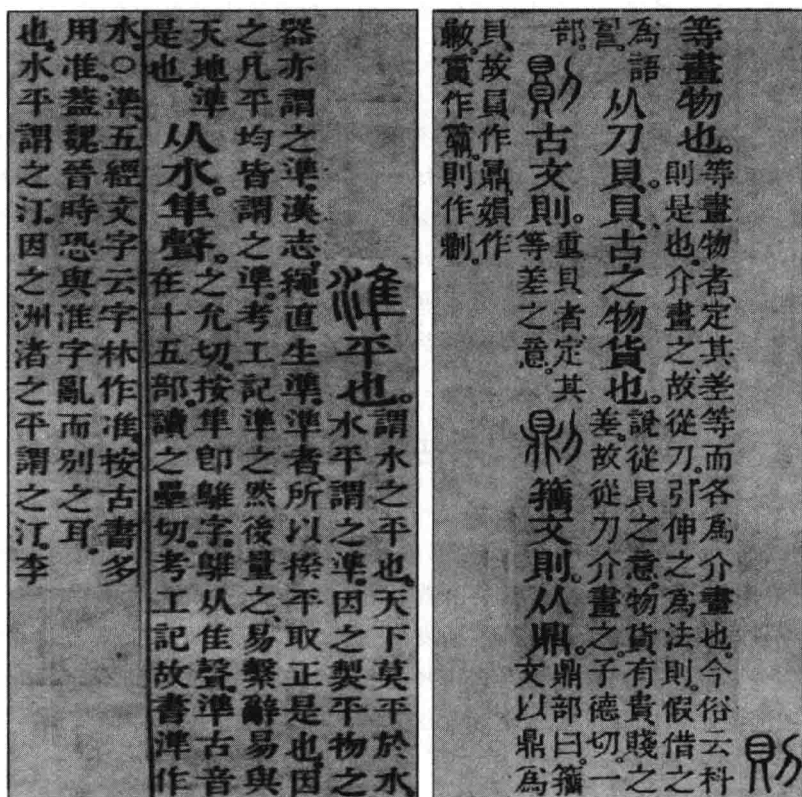 則
等畫物也。等畫物者、定其差等而各爲介畫也。今俗云科
則是也。介畫之、故從刀。引伸之爲法則。假借之
爲語䛐。从刀貝。貝、古之物貨也。說從貝之意。物貨有貴賤之
差。故從刀介畫之。子德切。一
部。古文則。重貝者、定其
等差之意。籒文則。从鼎。鼎部曰。籒
文以鼎爲
貝。故員作作
霣作則作
準平也。謂水之平也。天下莫平於水。
水平謂之準。因之製平物之
器亦謂之準。漢志、繩直生準。準者、所以揆平取正是也。因
之凡平均皆謂之準。考工記準之然後量之、易繫辭易與
天地準
是也。从水。隼聲。之允切。按隼卽鵻字。鵻从隹聲。準古音
在十五部。讀之壘切。考工記故書準作
水。○準、五經文字云字林作准。按古書多
用准。蓋魏晉時恐與淮字亂而別之耳。
也。水平謂之汀。因之洲渚之平謂之汀。李